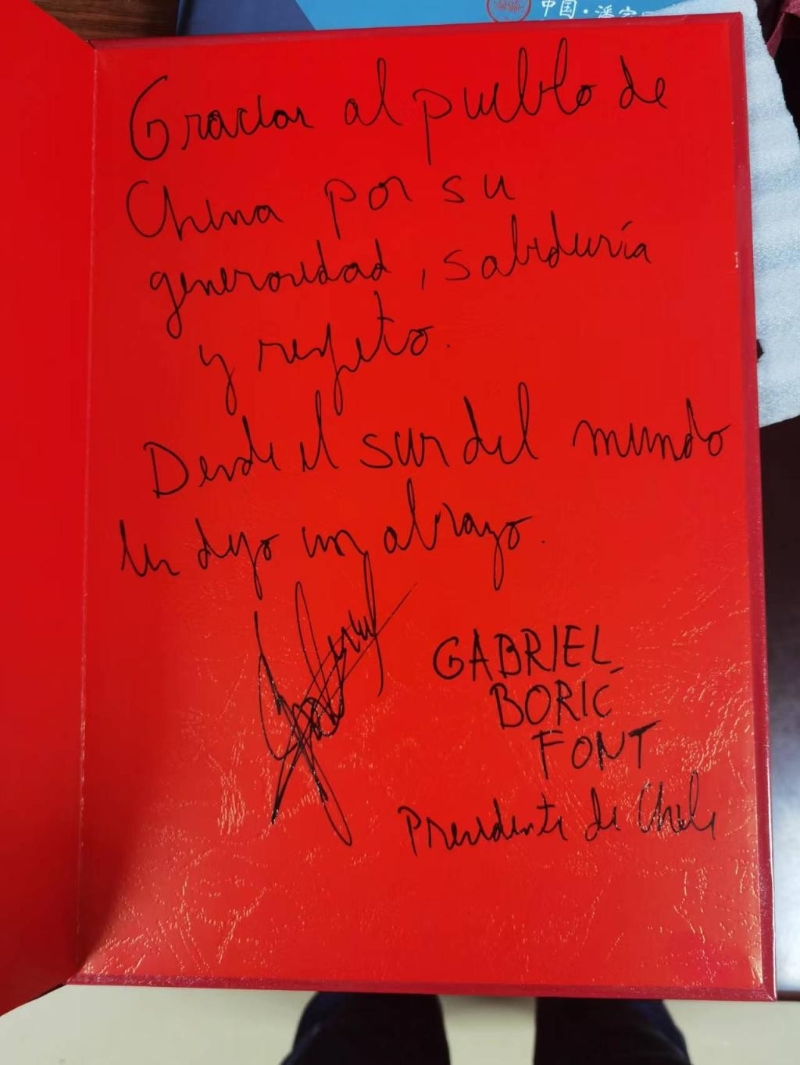 中国·潘家
Gracias al pueblo de
China por su
generosidad, sabiduría
y respeto.
Desde el sur del mundo
les dejo un abrazo.
GABRIEL
BORIC
FONT
Presidente de Chile